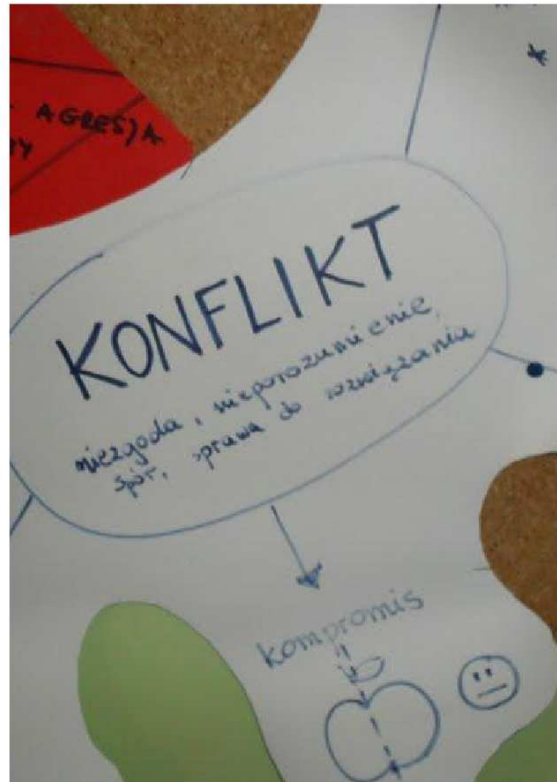 AGRESJA
KONFLIKT
niezgoda, nieporozumienie,
spór, sprawa do rozwiązania
kompromis